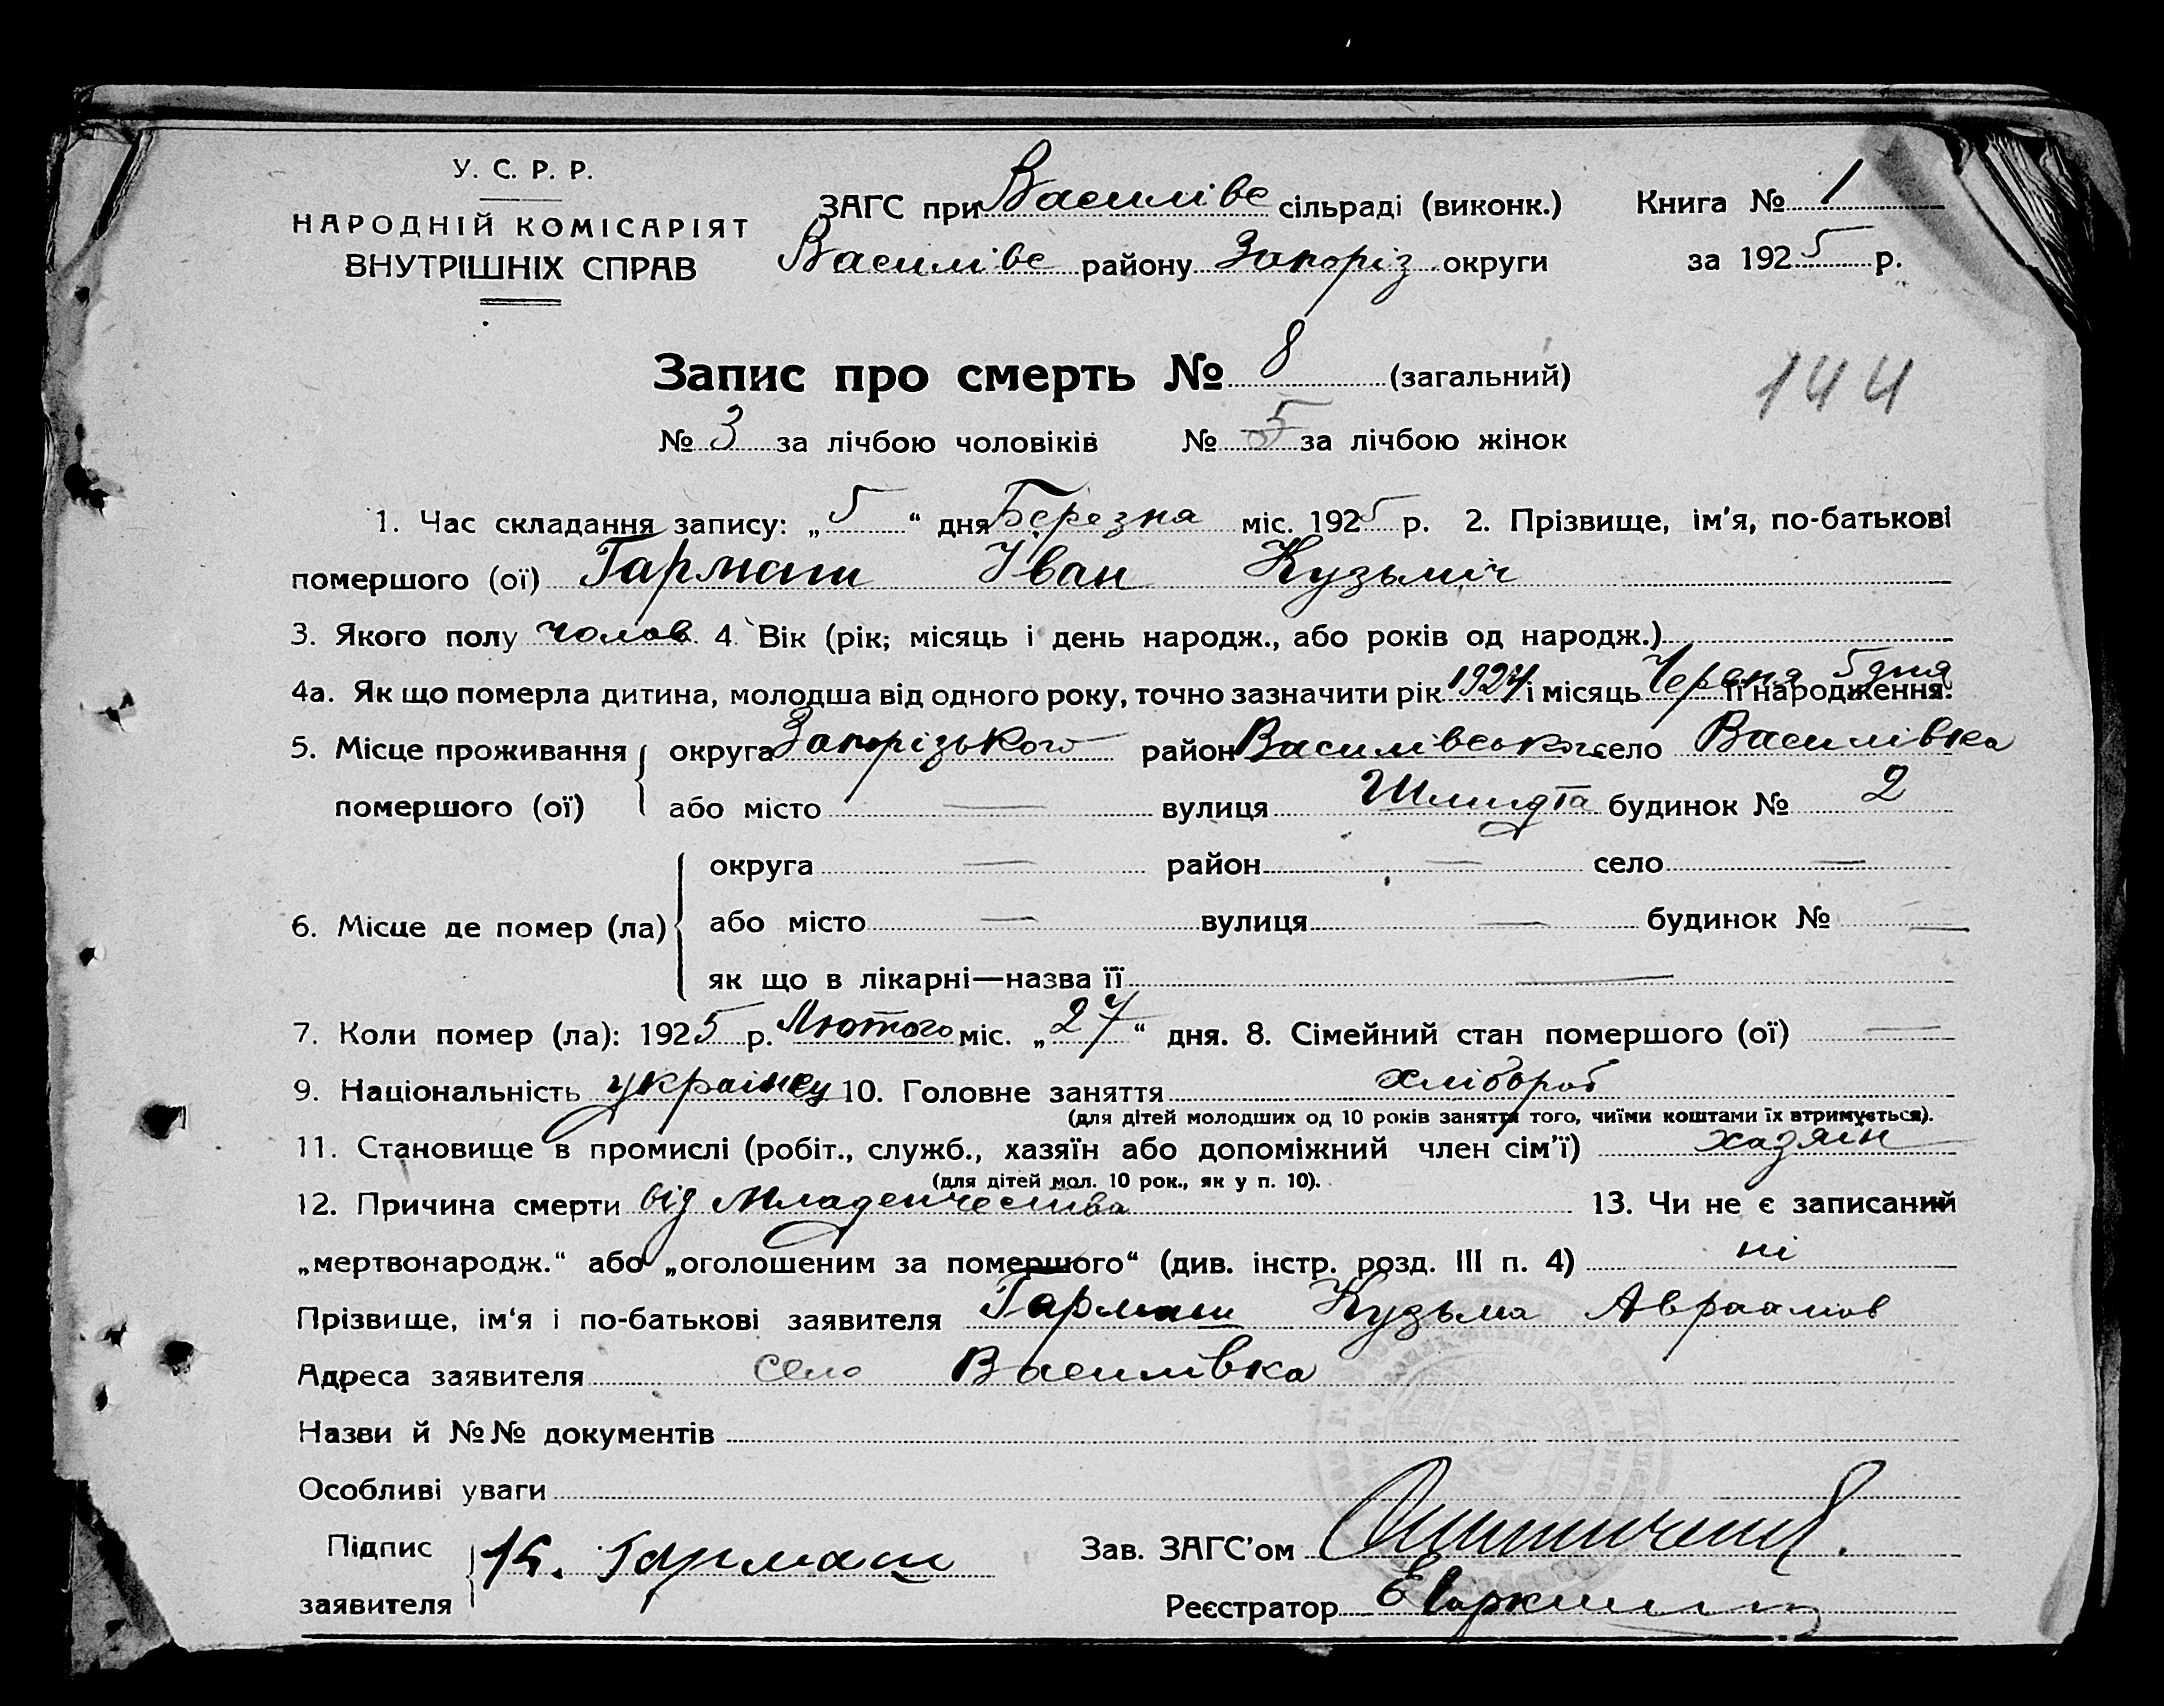 У. С. Р. Р.
НАРОДНІЙ КОМІСАРІЯТ
ВНУТРІШНІХ СПРАВ
ЗАГС при Василівс сільраді (виконк.)
Василівс району Запоріз округи
Книга № 1
за 1925 р.
Запис про смерть № 8 (загальний)
144
№ 3 за лічбою чоловіків № 5 за лічбою жінок
1. Час складання запису: „5“ дня Березня міс. 1925 р. 2. Прізвище, ім'я, по-батькові
помершого (ої) Гармаш Іван Кузьміч
3. Якого полу чолов. 4. Вік (рік; місяць і день народж., або років од народж.)
4а. Як що померла дитина, молодша від одного року, точно зазначити рік 1924 і місяць Червня 5 дня її народження.
5. Місце проживання округа Запорізького район Василівського село Василівка
помершого (ої) або місто — вулиця Шмидта будинок № 2
округа — район — село —
6. Місце де помер (ла) або місто — вулиця — будинок № —
як що в лікарні—назва її —
7. Коли помер (ла): 1925 р. Лютого міс. „27“ дня. 8. Сімейний стан помершого (ої) —
9. Національність українец 10. Головне заняття хлібороб
(для дітей молодших од 10 років заняття того, чиїми коштами їх втримується).
11. Становище в промислі (робіт., служб., хазяїн або допоміжний член сім'ї) хазяін
(для дітей мол. 10 рок., як у п. 10).
12. Причина смерти від Младенчества 13. Чи не є записаний
„мертвонародж.“ або „оголошеним за помершого“ (див. інстр. розд. III п. 4) ні
Прізвище, ім'я і по-батькові заявителя Гармаш Кузьма Авраамов
Адреса заявителя село Василівка
Назви й №№ документів
Особливі уваги
Підпис
заявителя К. Гармаш
Зав. ЗАГС'ом
Реєстратор